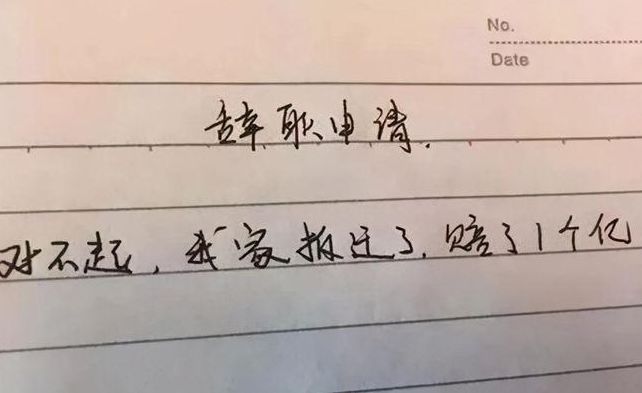 No.
Date
辞职申请.
对不起,我家拆迁了.赔了1个亿